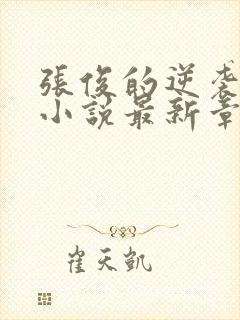 張俊的逆袭
小說最新章
崔天凱